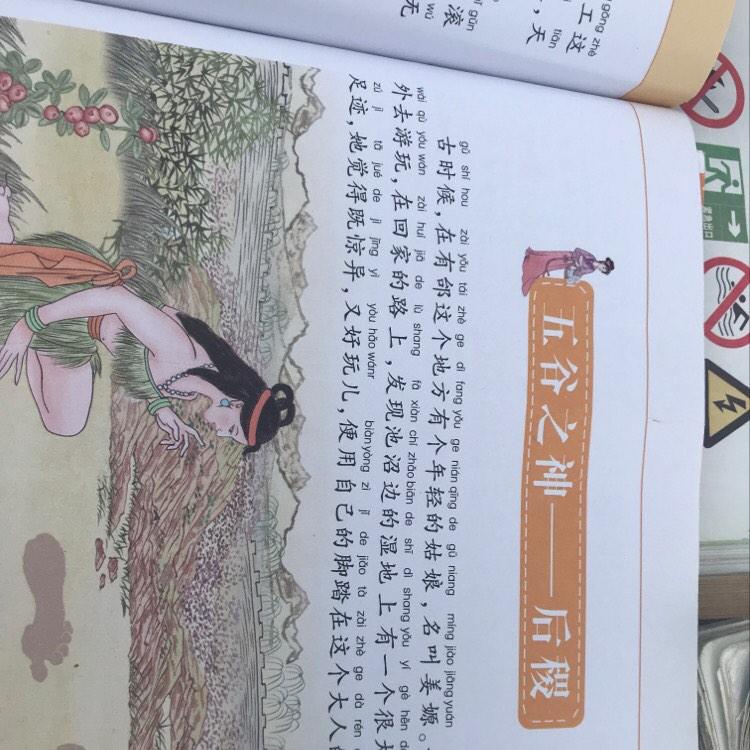 gōng zhè
工这
，天
gǔn
滚
wú
无
五谷之神——后稷
gǔ shí hou zài yǒu tái zhè ge dì fang yǒu ge nián qīng de gū niang míng jiào jiāng yuán
古时候，在有邰这个地方有个年轻的姑娘，名叫姜嫄。
wài qù yóu wán zài huí jiā de lù shang fā xiàn chí zhǎo biān de shī dì shang yǒu yí gè hěn
外去游玩，在回家的路上，发现池沼边的湿地上有一个很大
zú jì tā jué de jì jīng yì yòu hǎo wánr biàn yòng zì jǐ de jiǎo tà zài zhè ge dà rén
足迹，她觉得既惊异，又好玩儿，便用自己的脚踏在这个大人